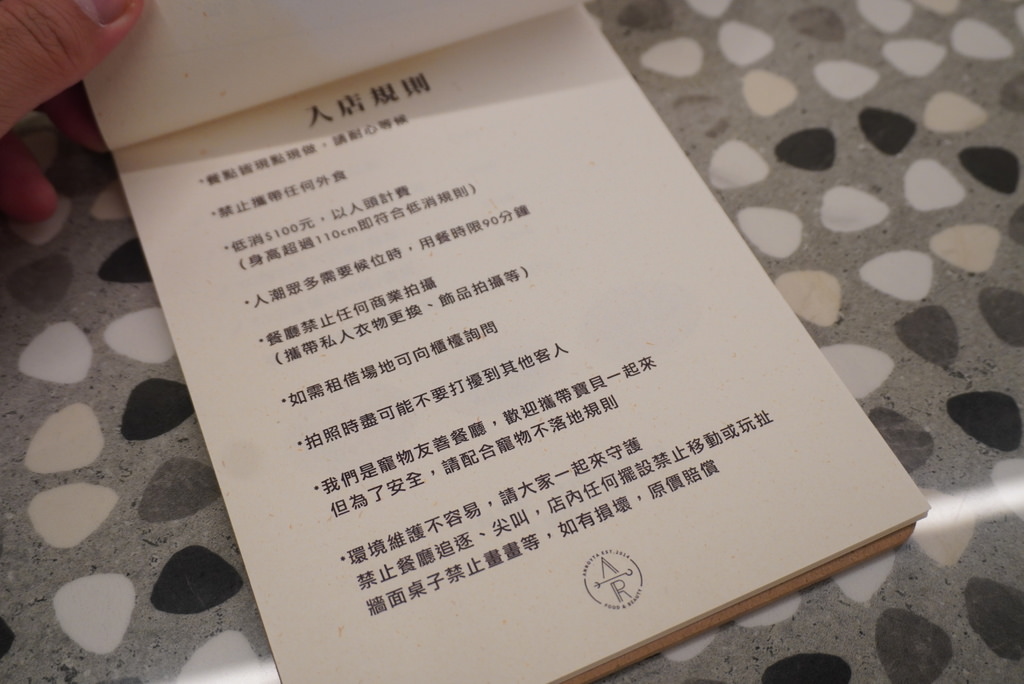 入店規則
•餐點皆現點現做，請耐心等候
•禁止攜帶任何外食
•低消$100元，以人頭計費
(身高超過110cm即符合低消規則)
•人潮眾多需要候位時，用餐時限90分鐘
•餐廳禁止任何商業拍攝
(攜帶私人衣物更換、飾品拍攝等)
•如需租借場地可向櫃檯詢問
•拍照時盡可能不要打擾到其他客人
•我們是寵物友善餐廳，歡迎攜帶寶貝一起來
但為了安全，請配合寵物不落地規則
•環境維護不容易，請大家一起來守護
禁止餐廳追逐、尖叫，店內任何擺設禁止移動或玩扯
牆面桌子禁止畫畫等，如有損壞，原價賠償
AR
FOOD & BEAUTY